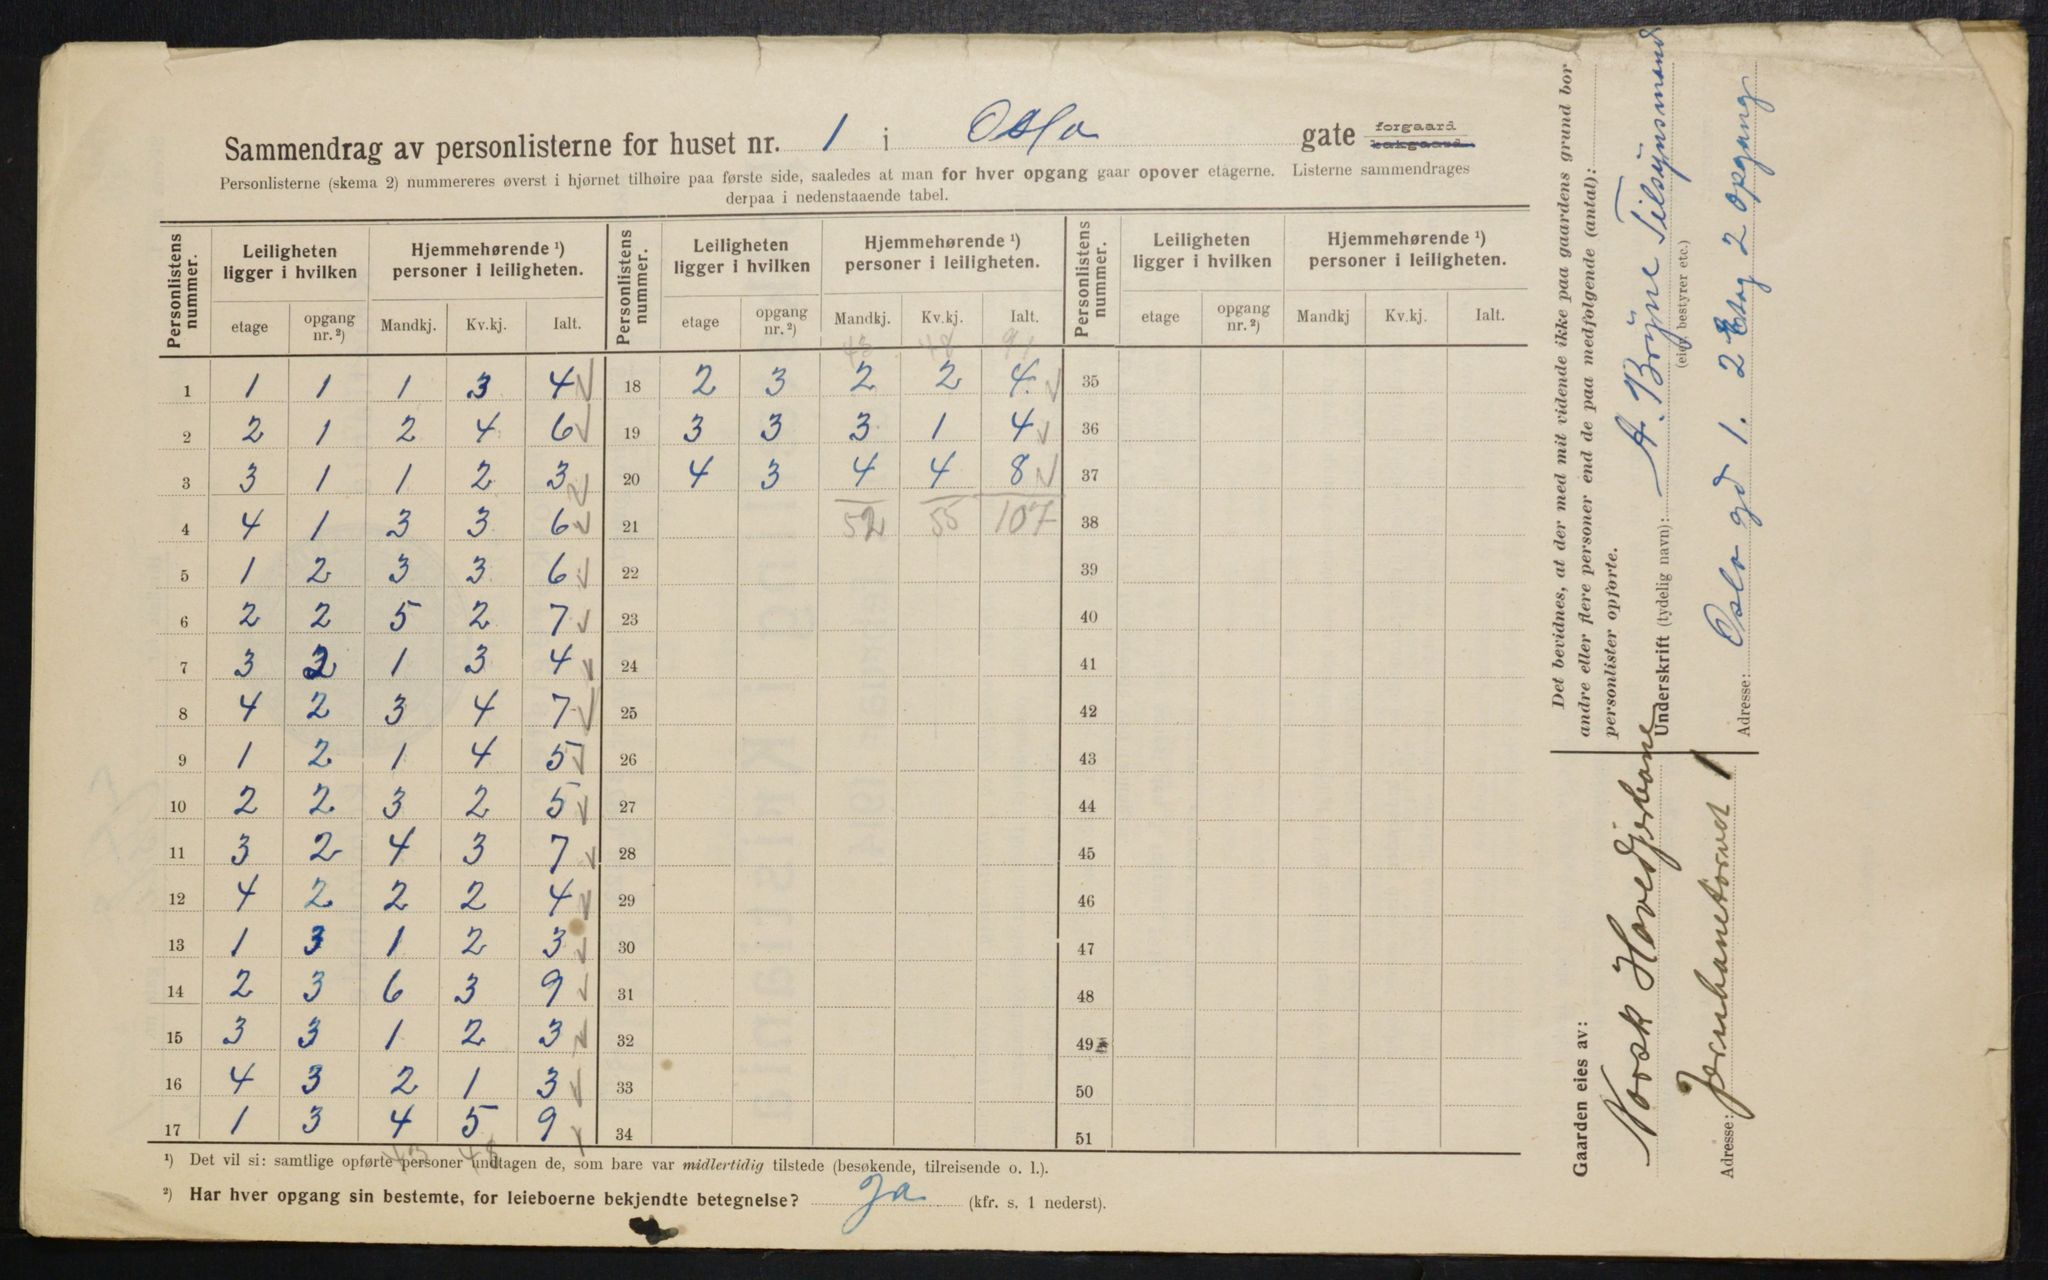 Sammendrag av personlisterne for huset nr. 1 i Oslo gate forgaard bakgaard.
Personlisterne (skema 2) nummereres øverst i hjørnet tilhøire paa første side, saaledes at man for hver opgang gaar opover etagerne. Listerne sammendrages
derpaa i nedenstaaende tabel.
Personlistens nummer. Leiligheten ligger i hvilken Hjemmehørende ¹) personer i leiligheten. Personlistens nummer. Leiligheten ligger i hvilken Hjemmehørende ¹) personer i leiligheten. Personlistens nummer. Leiligheten ligger i hvilken Hjemmehørende ¹) personer i leiligheten.
etage opgang nr. ²) Mandkj. Kv.kj. Ialt. etage opgang nr. ²) Mandkj. Kv.kj. Ialt. etage opgang nr. ²) Mandkj Kv.kj. Ialt.
43 48 91
1 1 1 1 3 4 18 2 3 2 2 4 35
2 2 1 2 4 6 19 3 3 3 1 4 36
3 3 1 1 2 3 20 4 3 4 4 8 37
4 4 1 3 3 6 21 52 55 107 38
5 1 2 3 3 6 22 39
6 2 2 5 2 7 23 40
7 3 2 1 3 4 24 41
8 4 2 3 4 7 25 42
9 1 2 1 4 5 26 43
10 2 2 3 2 5 27 44
11 3 2 4 3 7 28 45
12 4 2 2 2 4 29 46
13 1 3 1 2 3 30 47
14 2 3 6 3 9 31 48
15 3 3 1 2 3 32 49
16 4 3 2 1 3 33 50
17 1 3 4 5 9 34 51
43 48
¹) Det vil si: samtlige opførte personer undtagen de, som bare var midlertidig tilstede (besøkende, tilreisende o. l.).
²) Har hver opgang sin bestemte, for leieboerne bekjendte betegnelse? Ja (kfr. s. 1 nederst).
Det bevidnes, at der med mit vidende ikke paa gaardens grund bor
andre eller flere personer end de paa medfølgende (antal):
personlister opførte.
Underskrift (tydelig navn): A. Bryne Tilsynsmand
(eier, bestyrer etc.)
Adresse: Oslo gd 1. 2 Etag 2 opgang
Gaarden eies av:
Norsk Hovedjerbane
Adresse: Jernbanetorvet 1